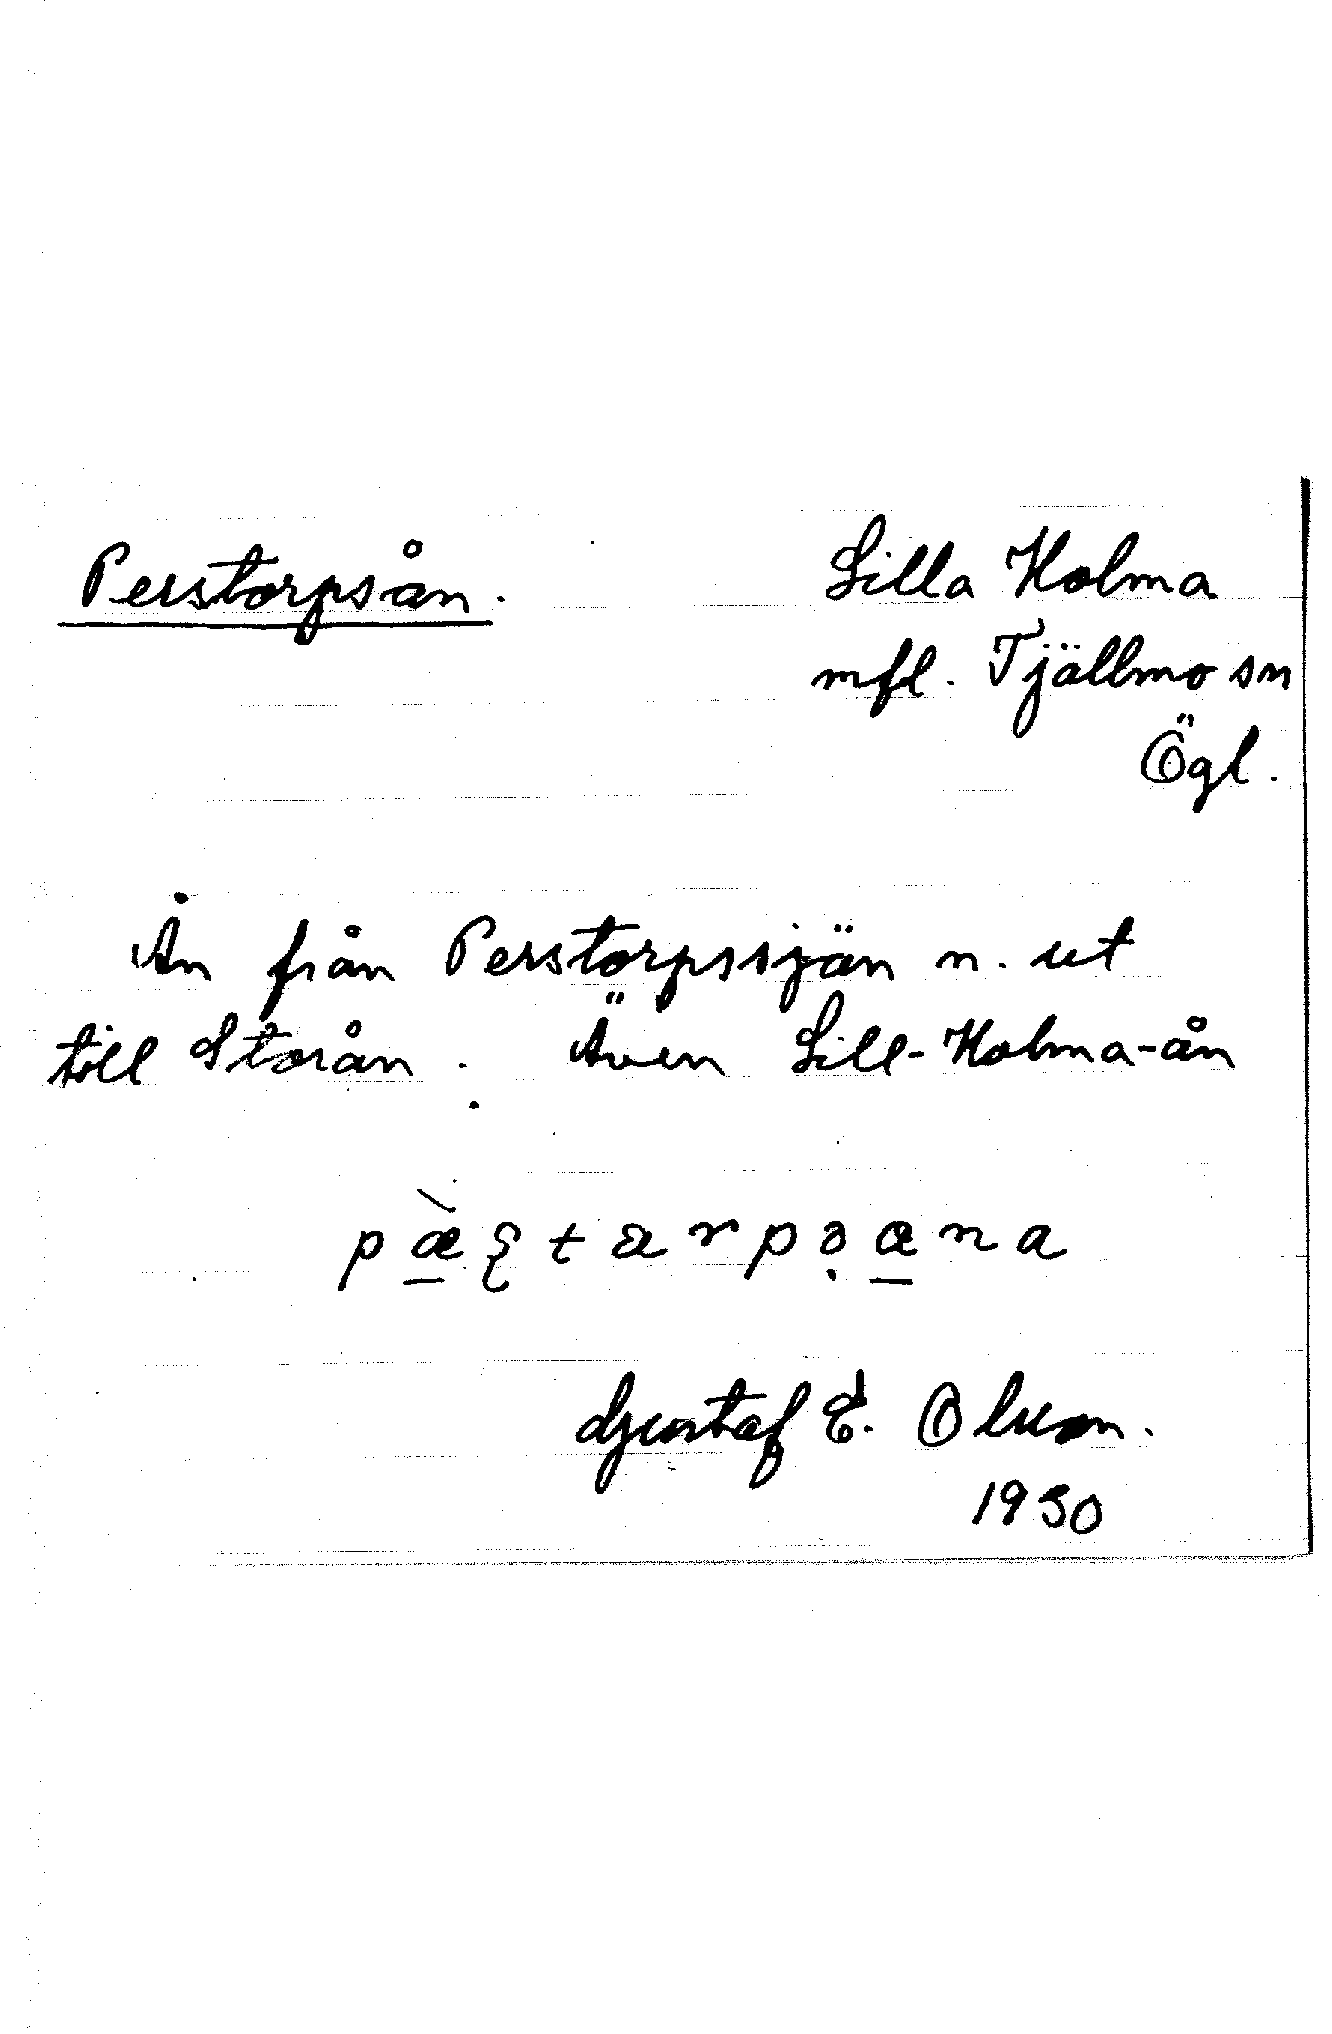 Perstorpsån.
Lilla Holma
mfl. Tjällmo sn
Ögl.
Ån från Perstorpssjän n. ut
till Storån. Även Lill-Holma-ån
Gustaf E. Olsson.
1930